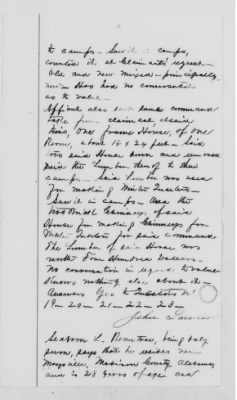 to camps - Saw it in camps,
counted it at Claimants request -
Old and new mixed - principally
new - Has had no conversation
as to value -
Affiant also saw same command
take from claimant, claim
One frame House, of one
Room, about 16 x 24 feet - Said
said House down and removed
said the Lumber to their
camp - Said Lumber was used
for making Winter Quarters -
Saw it in camp - And the
Chimneys of said
House for making Chimneys for
Quarters for said command
The Lumber of said House was
worth Four Hundred Dollars -
No conversation in regard to value
Knows nothing else about it -
Answers Yes to
19 - 20 - 21 - 22 - 23 -
John
L. being duly
sworn, says that he resides near
Maysville, Madison County Alabama
and is 28 years of age and